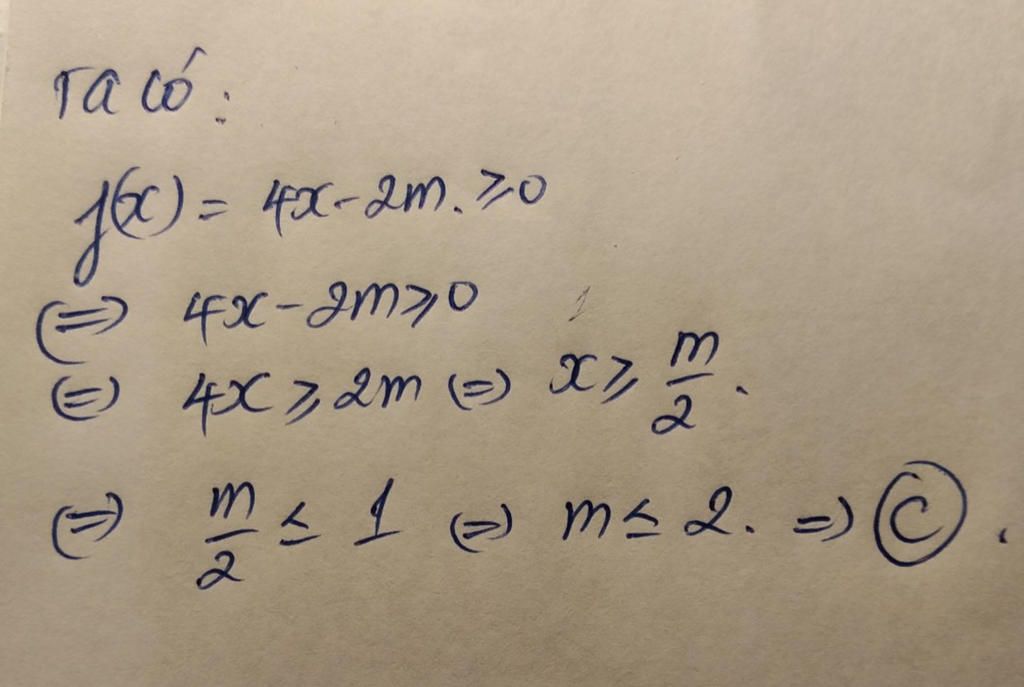 Ta có:
f(x) = 4x - 2m. ⩾ 0
⇔ 4x - 2m ⩾ 0
⇔ 4x ⩾ 2m ⇔ x ⩾ m/2.
⇔ m/2 ≤ 1 ⇔ m ≤ 2. ⇒ Ⓒ.